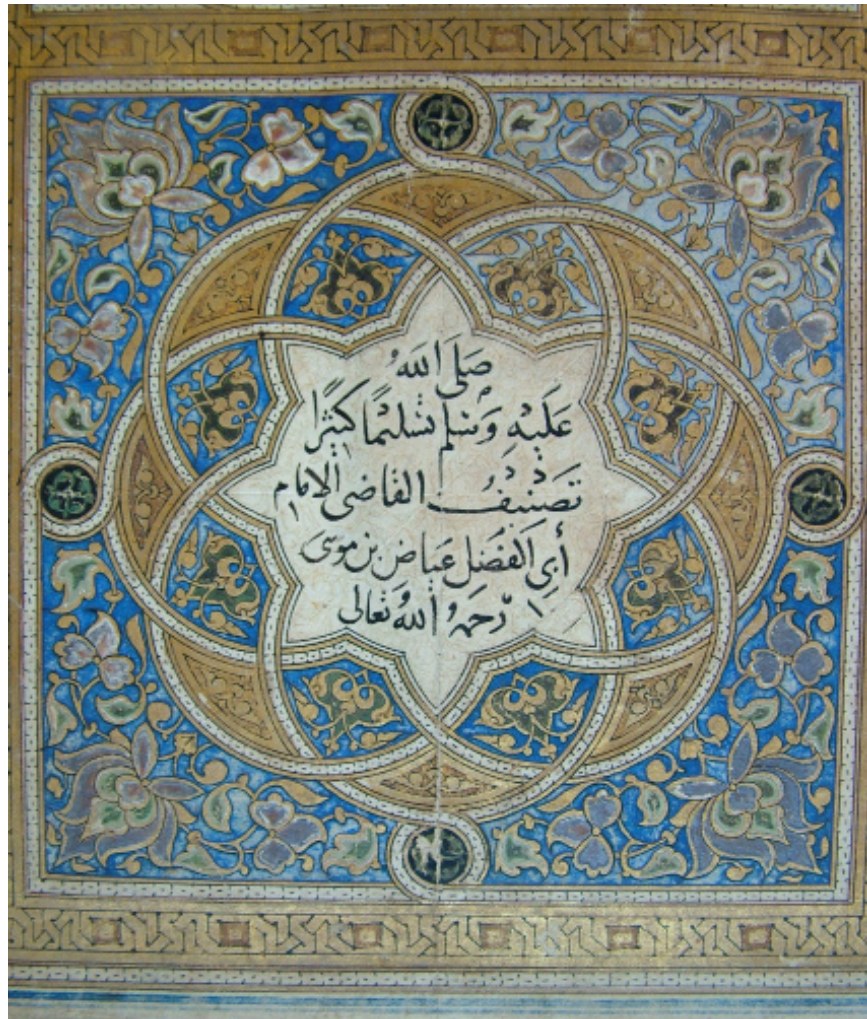 صَلَّى اللهُ
عَلَيْهِ وَسَلَّم تَسْلِيْمًا كَثِيْرًا
تَصْنِيْفُ القاضى الامام
أَبِى الفَضْل عياض بن موسى
رَحمهُ اللهُ تعالى